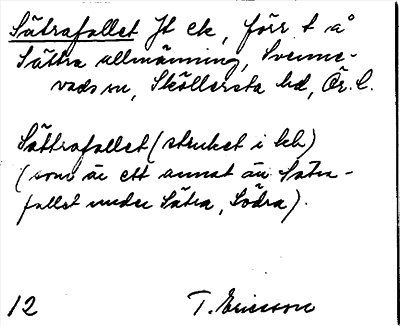 Sätrafallet Jt ek, förr t å
Sättra allmänning, Svenne-
vads sn, Sköllersta hd, Ör. l.
Sättrafallet (struket i kb)
(som är ett annat än Sätra-
fallet under Sätra, Södra).
12 T. Ericsson